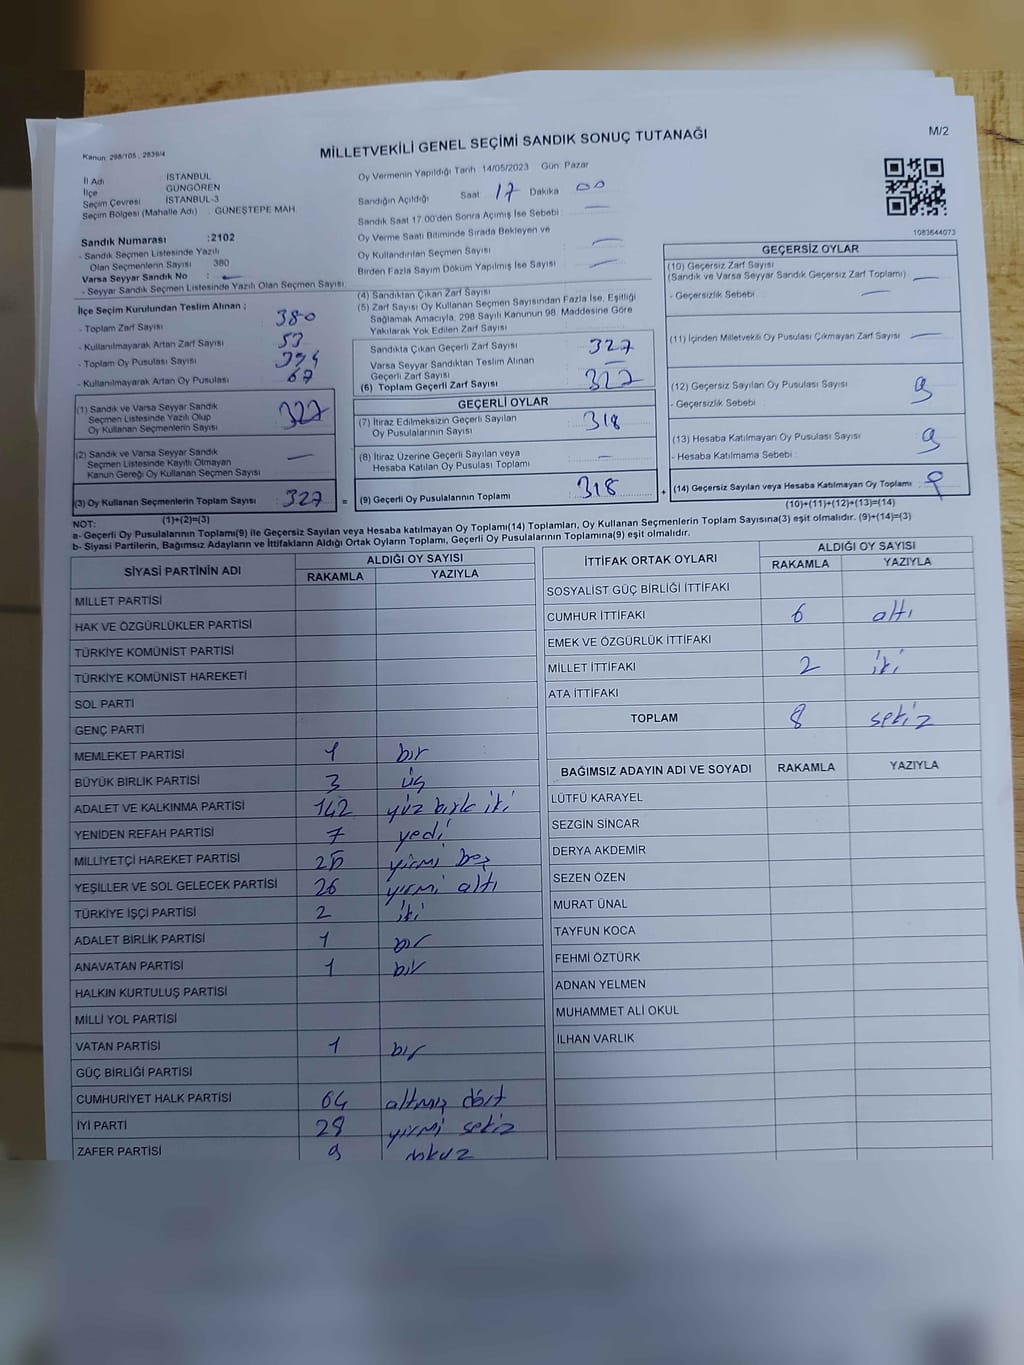 Kanun: 298/105 , 2839/4
MİLLETVEKİLİ GENEL SEÇİMİ SANDIK SONUÇ TUTANAĞI
M/2
İl Adı : İSTANBUL
İlçe : GÜNGÖREN
Seçim Çevresi : İSTANBUL-3
Seçim Bölgesi (Mahalle Adı) : GÜNEŞTEPE MAH.
Sandık Numarası :2102
- Sandık Seçmen Listesinde Yazılı
Olan Seçmenlerin Sayısı : 380
Varsa Seyyar Sandık No : —
- Seyyar Sandık Seçmen Listesinde Yazılı Olan Seçmen Sayısı:
Oy Vermenin Yapıldığı Tarih :14/05/2023 Gün: Pazar
Sandığın Açıldığı Saat : 17 Dakika : 00
Sandık Saat 17.00'den Sonra Açımış İse Sebebi : —
Oy Verme Saati Bitiminde Sırada Bekleyen ve
Oy Kullandırılan Seçmen Sayısı : —
Birden Fazla Sayım Döküm Yapılmış İse Sayısı : —
1083644073
İlçe Seçim Kurulundan Teslim Alınan ;
- Toplam Zarf Sayısı : 380
- Kullanılmayarak Artan Zarf Sayısı : 53
- Toplam Oy Pusulası Sayısı : 394
- Kullanılmayarak Artan Oy Pusulası : 67
(1) Sandık ve Varsa Seyyar Sandık
Seçmen Listesinde Yazılı Olup
Oy Kullanan Seçmenlerin Sayısı : 327
(2) Sandık ve Varsa Seyyar Sandık
Seçmen Listesinde Kayıtlı Olmayan
Kanun Gereği Oy Kullanan Seçmen Sayısı : —
(3) Oy Kullanan Seçmenlerin Toplam Sayısı : 327 =
(1)+(2)=(3)
(4) Sandıktan Çıkan Zarf Sayısı :
(5) Zarf Sayısı Oy Kullanan Seçmen Sayısından Fazla İse, Eşitliği
Sağlamak Amacıyla, 298 Sayılı Kanunun 98. Maddesine Göre
Yakılarak Yok Edilen Zarf Sayısı :
Sandıkta Çıkan Geçerli Zarf Sayısı : 327
Varsa Seyyar Sandıktan Teslim Alınan
Geçerli Zarf Sayısı : —
(6) Toplam Geçerli Zarf Sayısı : 327
GEÇERLİ OYLAR
(7) İtiraz Edilmeksizin Geçerli Sayılan
Oy Pusulalarının Sayısı : 318
(8) İtiraz Üzerine Geçerli Sayılan veya
Hesaba Katılan Oy Pusulası Toplamı : —
(9) Geçerli Oy Pusulalarının Toplamı : 318 +
GEÇERSİZ OYLAR
(10) Geçersiz Zarf Sayısı
(Sandık ve Varsa Seyyar Sandık Geçersiz Zarf Toplamı) : —
- Geçersizlik Sebebi : —
(11) İçinden Milletvekili Oy Pusulası Çıkmayan Zarf Sayısı : —
(12) Geçersiz Sayılan Oy Pusulası Sayısı : 9
- Geçersizlik Sebebi :
(13) Hesaba Katılmayan Oy Pusulası Sayısı : 9
- Hesaba Katılmama Sebebi :
(14) Geçersiz Sayılan veya Hesaba Katılmayan Oy Toplamı : 9
(10)+(11)+(12)+(13)=(14)
NOT:
a- Geçerli Oy Pusulalarının Toplamı(9) ile Geçersiz Sayılan veya Hesaba katılmayan Oy Toplamı(14) Toplamları, Oy Kullanan Seçmenlerin Toplam Sayısına(3) eşit olmalıdır. (9)+(14)=(3)
b- Siyasi Partilerin, Bağımsız Adayların ve İttifakların Aldığı Ortak Oyların Toplamı, Geçerli Oy Pusulalarının Toplamına(9) eşit olmalıdır.
SİYASİ PARTİNİN ADI ALDIĞI OY SAYISI
RAKAMLA YAZIYLA
MİLLET PARTİSİ
HAK VE ÖZGÜRLÜKLER PARTİSİ
TÜRKİYE KOMÜNİST PARTİSİ
TÜRKİYE KOMÜNİST HAREKETİ
SOL PARTİ
GENÇ PARTİ
MEMLEKET PARTİSİ 1 bir
BÜYÜK BİRLİK PARTİSİ 3 üç
ADALET VE KALKINMA PARTİSİ 142 yüz kırk iki
YENİDEN REFAH PARTİSİ 7 yedi
MİLLİYETÇİ HAREKET PARTİSİ 25 yirmi beş
YEŞİLLER VE SOL GELECEK PARTİSİ 26 yirmi altı
TÜRKİYE İŞÇİ PARTİSİ 2 iki
ADALET BİRLİK PARTİSİ 1 bir
ANAVATAN PARTİSİ 1 bir
HALKIN KURTULUŞ PARTİSİ
MİLLİ YOL PARTİSİ
VATAN PARTİSİ 1 bir
GÜÇ BİRLİĞİ PARTİSİ
CUMHURİYET HALK PARTİSİ 64 altmış dört
İYİ PARTİ 28 yirmi sekiz
ZAFER PARTİSİ 9 dokuz
İTTİFAK ORTAK OYLARI ALDIĞI OY SAYISI
RAKAMLA YAZIYLA
SOSYALİST GÜÇ BİRLİĞİ İTTİFAKI
CUMHUR İTTİFAKI 6 altı
EMEK VE ÖZGÜRLÜK İTTİFAKI
MİLLET İTTİFAKI 2 iki
ATA İTTİFAKI
TOPLAM 8 sekiz
BAĞIMSIZ ADAYIN ADI VE SOYADI RAKAMLA YAZIYLA
LÜTFÜ KARAYEL
SEZGİN SİNCAR
DERYA AKDEMİR
SEZEN ÖZEN
MURAT ÜNAL
TAYFUN KOCA
FEHMİ ÖZTÜRK
ADNAN YELMEN
MUHAMMET ALİ OKUL
İLHAN VARLIK